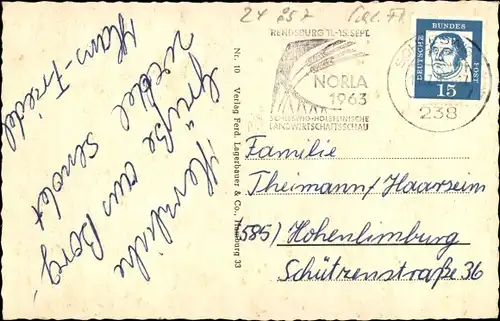 24 957
RENDSBURG 11.-15. SEPT.
NORLA
1963
SCHLESWIG-HOLSTEINISCHE
LANDWIRTSCHAFTSSCHAU
DEUTSCHE BUNDES POST
15
238
Herzliche
Grüße aus Borg
sendet
Hans-Friedel
Nr. 10 Verlag Ferd. Lagerbauer & Co., Hamburg 33
Familie
Theimann/Haarseim
(585) Hohenlimburg
Schützenstraße 36